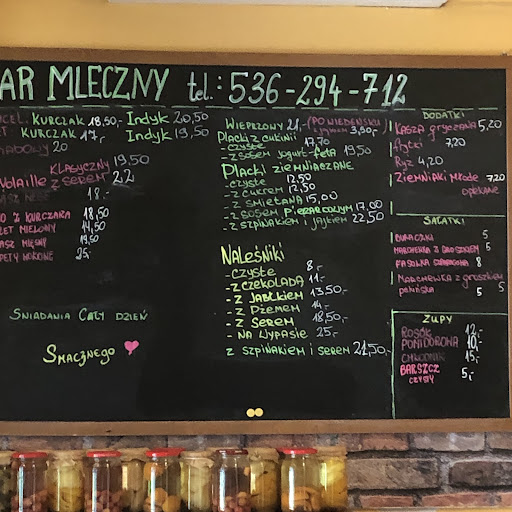 AR MLECZNY tel.: 536-294-712
CEL. KURCZAK 18,50,- Indyk 20,50
ET KURCZAK 17,- Indyk 19,50
20
KLASYCZNY 19,50
Volaille z SEREM 22
18.-
O z KURCZAKA 18,50
LET MIELONY 14,50
ASZ MIĘSNY 19,50
25,-
ŚNIADANIA CAŁY DZIEŃ
SMACZNEGO
WIEPRZOWY 21,- (PO WIEDEŃSKU 3,50,-
Placki z cukinii
- CZYSTE 17,70
- z SOSEM JOGURT-FETA 19,50
Placki ziemniaczane
- CZYSTE 12,50
- z CUKREM 12,50
- z ŚMIETANĄ 15,00
- z SOSEM PIECZARKOWYM 17,00
- z SZPINAKIEM i JAJKIEM 22,50
NALEŚNIKI
- CZYSTE 8,-
- z CZEKOLADĄ 11,-
- z JABŁKIEM 13,50,-
- z DŻEMEM 14,-
- z SEREM 18,50,-
- NA WYPASIE 25,-
z SZPINAKIEM i SEREM 21,50,-
DODATKI
KASZA gryczana 5,20
Frytki 7,20
Ryż 4,20
ZIEMNIAKI MŁODE 7,20
opiekane
SAŁATKI
BURACZKI 5
MARCHEWKA Z GROSZKIEM 5
FASOLKA SZPARAGOWA 8
MARCHEWKA z groszkiem
pekińska 5 5
ZUPY
ROSÓŁ 12,-
POMIDOROWA 10,-
CHŁODNIK 15,-
BARSZCZ 5,-
CZYSTY